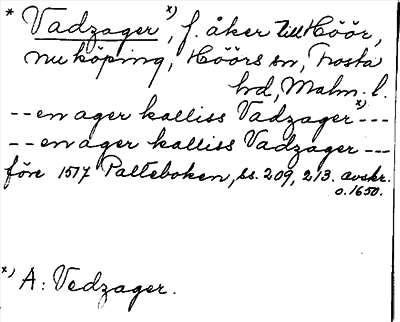 * Vadzager x), f. åker till Höör,
nu köping, Höörs sn, Frosta
hd, Malm. l.
-- en ager kalliss Vadzager x) ---
-- en ager kalliss Vadzager ---
före 1517 Palteboken, ss. 209, 213. avskr.
o. 1650.
x) A: Vedzager.